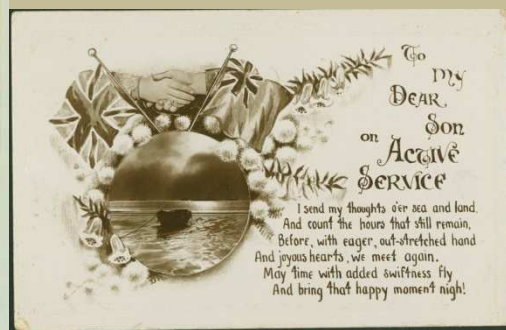 To
my
Dear
Son
on
Active
Service
I send my thoughts o'er sea and land.
And count the hours that still remain,
Before, with eager, out-stretched hand
And joyous hearts, we meet again.
May time with added swiftness fly
And bring that happy moment nigh!